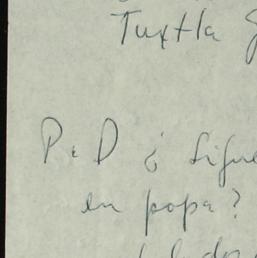 Tuxtla
P.D ¿ Sigue
en popa?